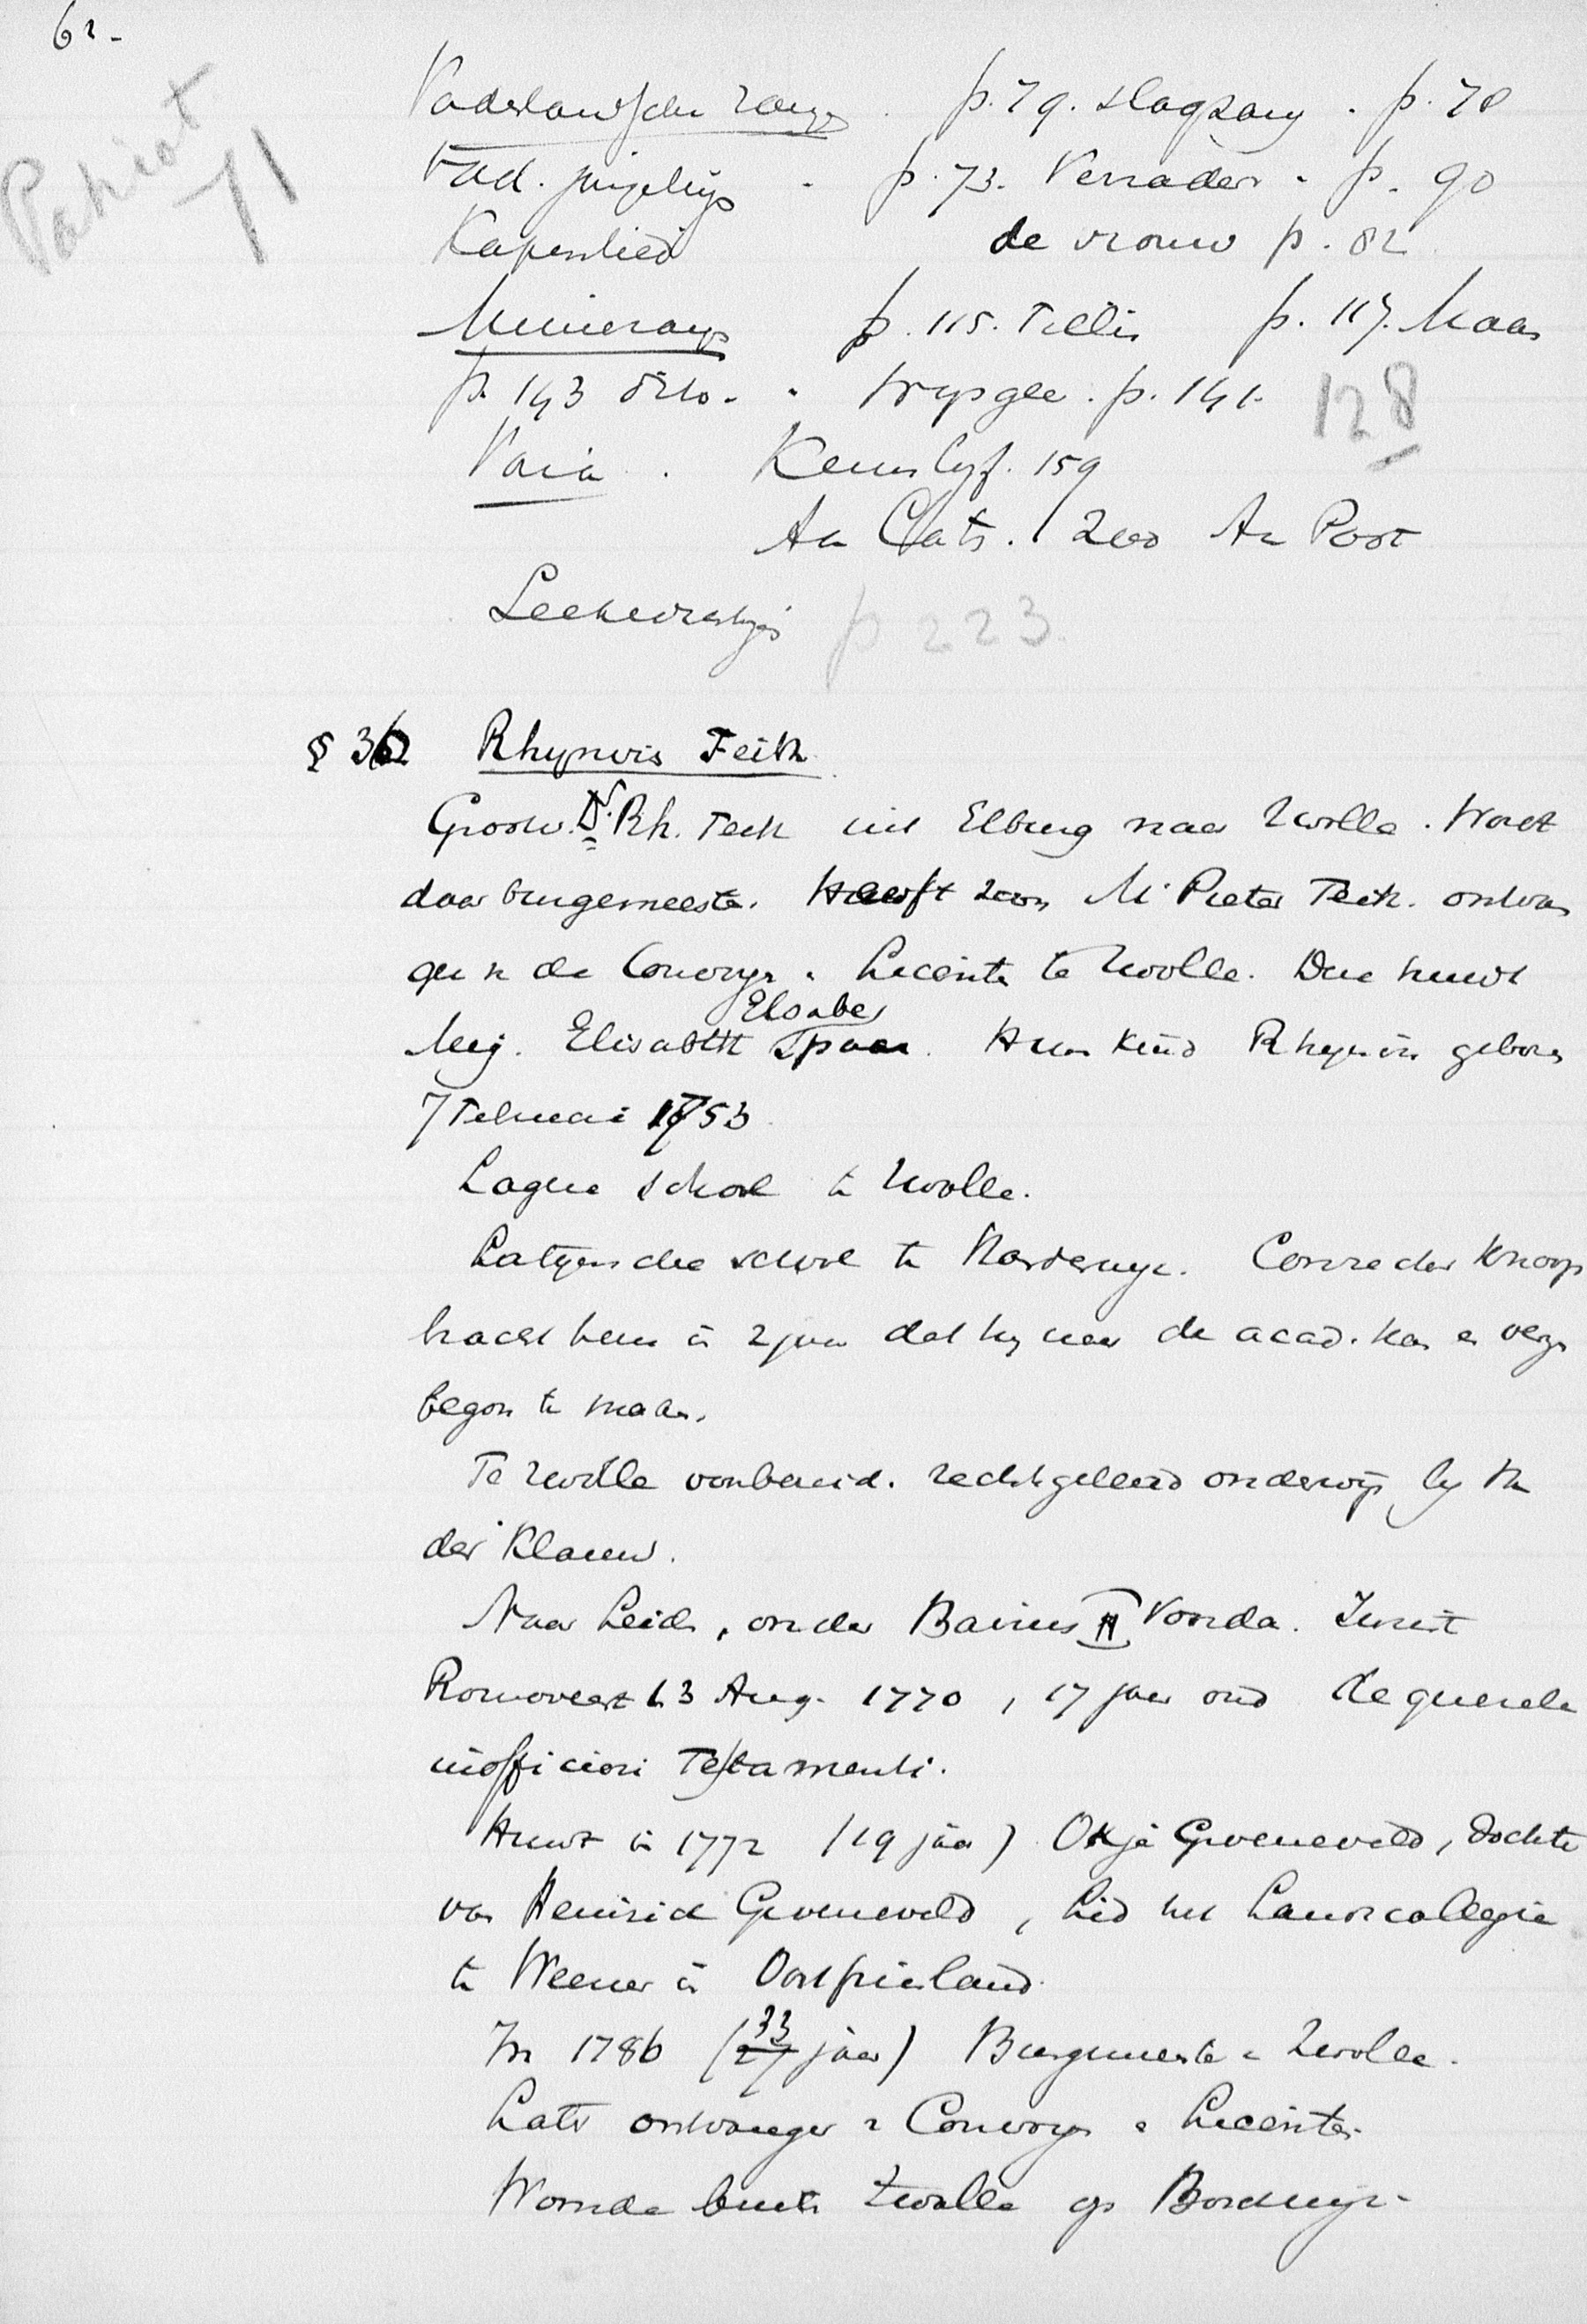 62.
Patriot
71
Vaderlandsche zangen . p. 79. Slagzang . p. 78
Vad. jongelings . p. 73. Verrader . p. 90
Kaperslied de vrouw p. 82
Minnezangen p. 115. Fillis p. 117. Maar
p. 143 dito. . Wysgee. p. 141.
128
Varia . Kenn lyf. 159
An Cats. / 200 An Poot
Leekevrestjes p 223.
§ 36 Rhynvis Feith
Grootv. Dr. Rh. Feith uit Elburg naar Zwolle. Wordt
daar burgemeester. Heeft zoon Mr Pieter Feith. ontvan
ger v. de Convoyen . Licenten te Zwolle. Deze huwt
Mej. Elisabeth Elsabe Spaar. Hun kind Rhynvis geboren
7 Februari 1753.
Lagere school te Zwolle.
Latynsche school te Harderwyk. Conrector Knoop
bracht hem in 2 jaar dat hy naar de acad. kon en verzen
begon te maken.
Te Zwolle voorbereid. rechtsgeleerd onderwijs by Van
der Klauw.
Naar Leiden, onder Bavius Voorda. Jurist
Romoveert 13 Aug. 1770, 17 jaar oud De querela
inofficiosi Testamenti.
Huwt in 1772 (19 jaar) Okje Groeneveld, dochter
van Henrick Groeneveld, Lid het Landscollegie
te Weener in Oostfriesland.
In 1786 (33 27 jaar) Burgemeester v Zwolle.
Later ontvanger v Convoyen e Licenten.
Woonde buiten Zwolle op Boschwijk.